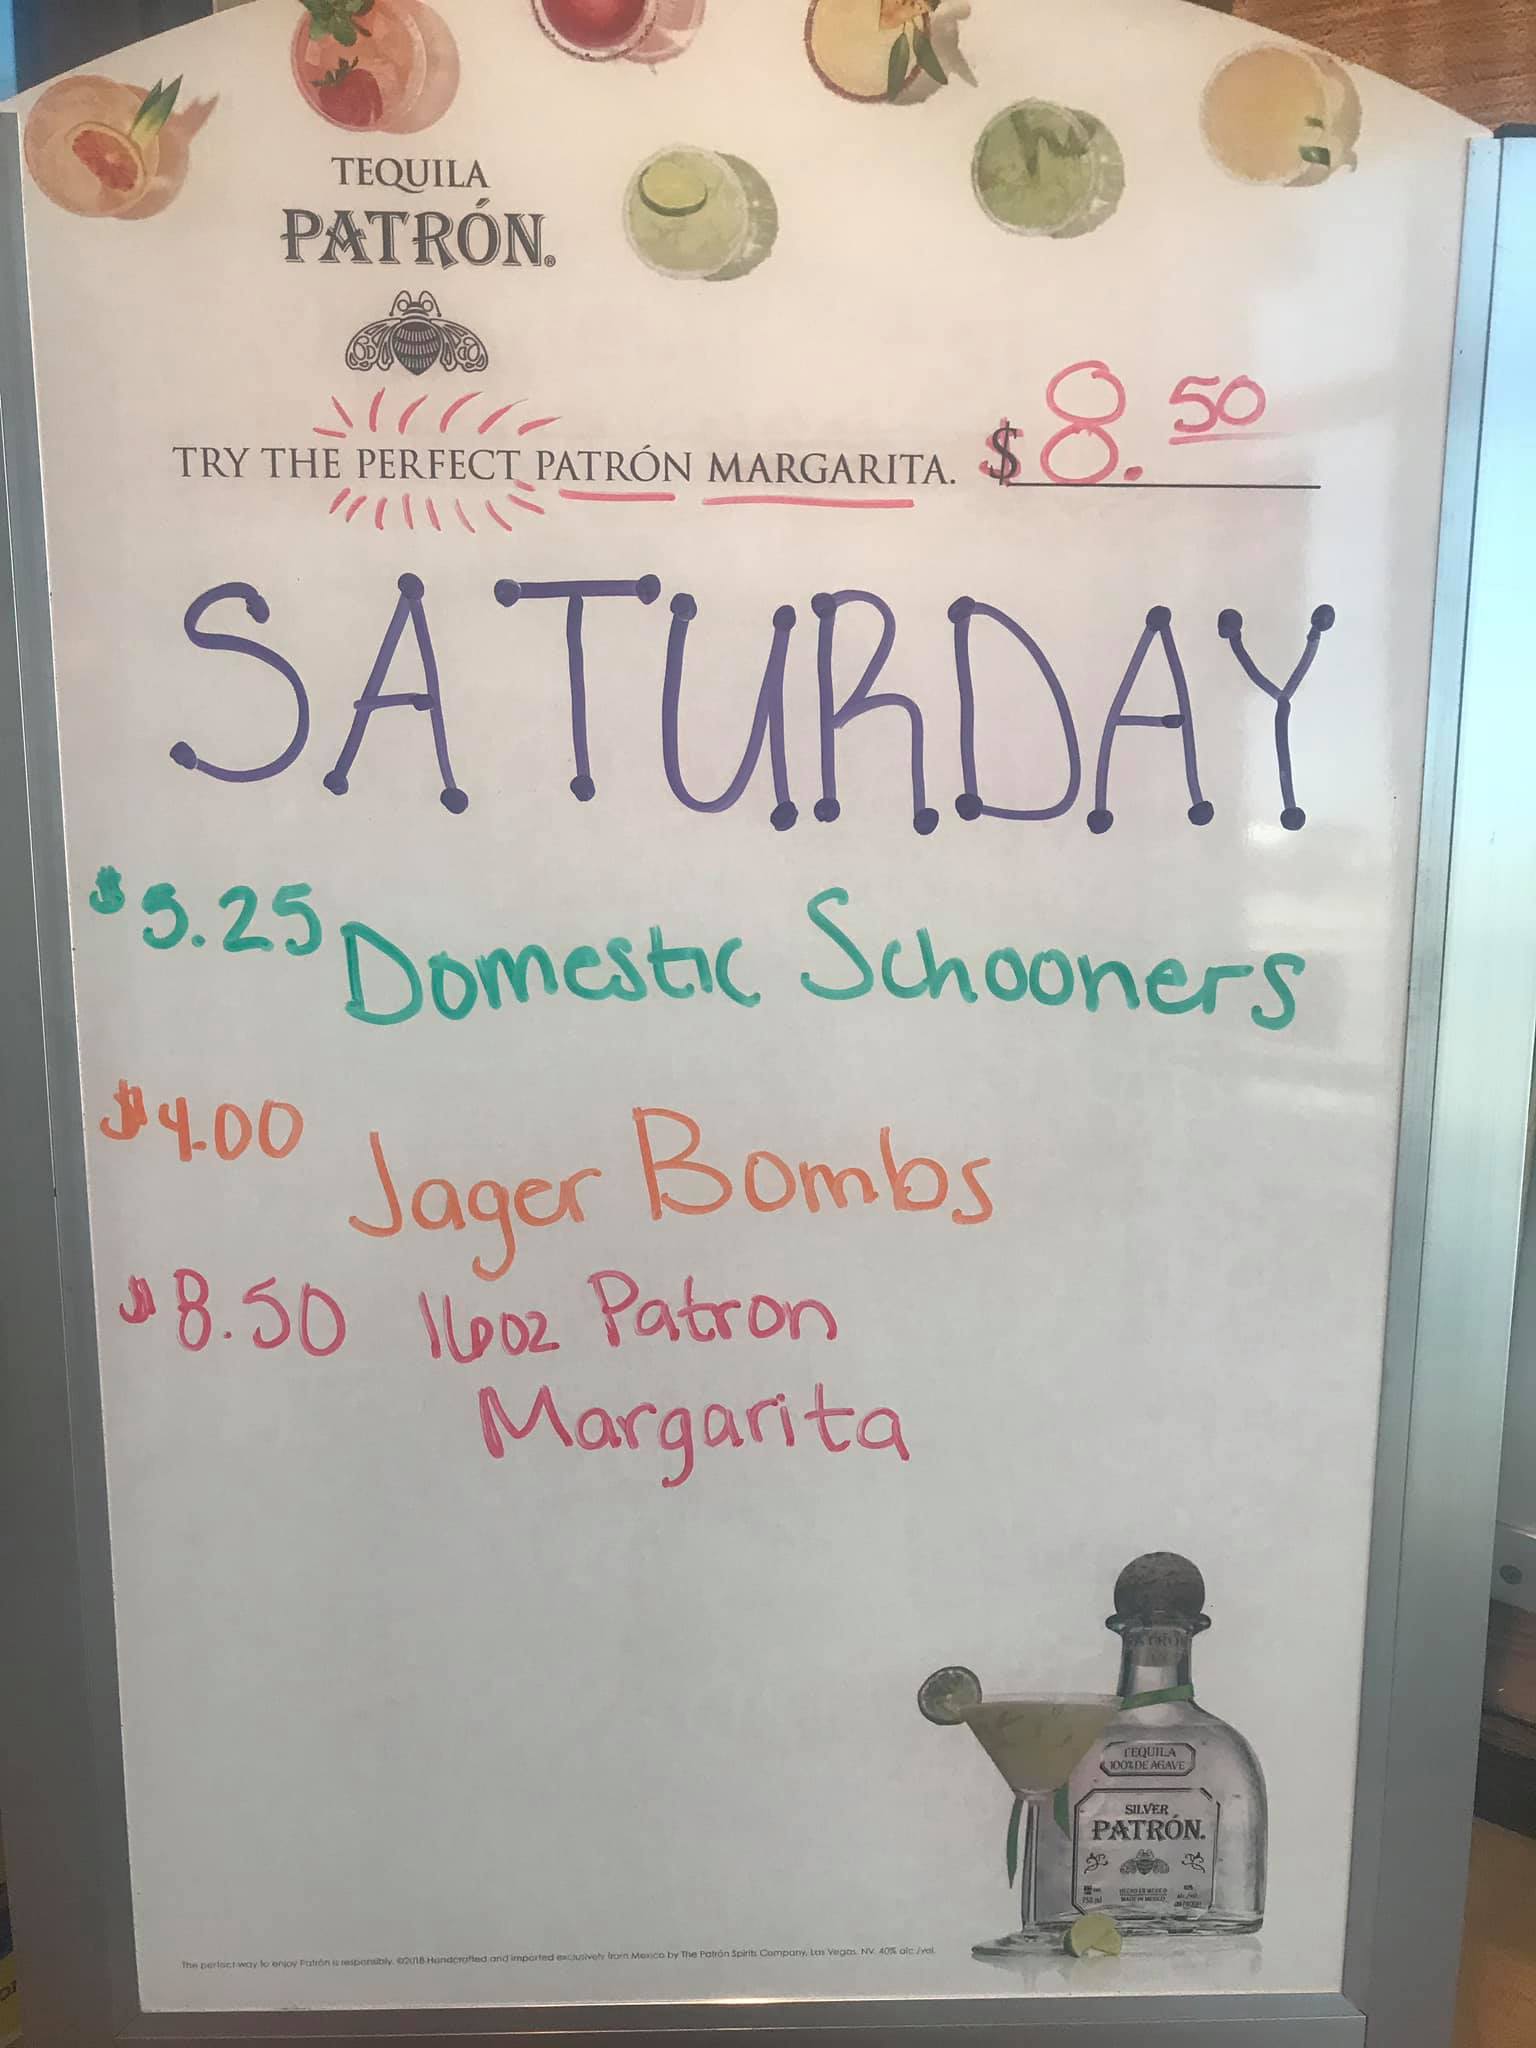 TEQUILA
PATRÓN®
TRY THE PERFECT PATRÓN MARGARITA. $8.50
SATURDAY
$5.25 Domestic Schooners
$4.00 Jager Bombs
$8.50 16oz Patron
Margarita
PATRÓN
TEQUILA
100% DE AGAVE
SILVER
PATRÓN.
HECHO EN MEXICO
MADE IN MEXICO
750 ml
The perfect way to enjoy Patrón is responsibly. ©2018 Handcrafted and imported exclusively from Mexico by The Patrón Spirits Company, Las Vegas, NV. 40% alc./vol.